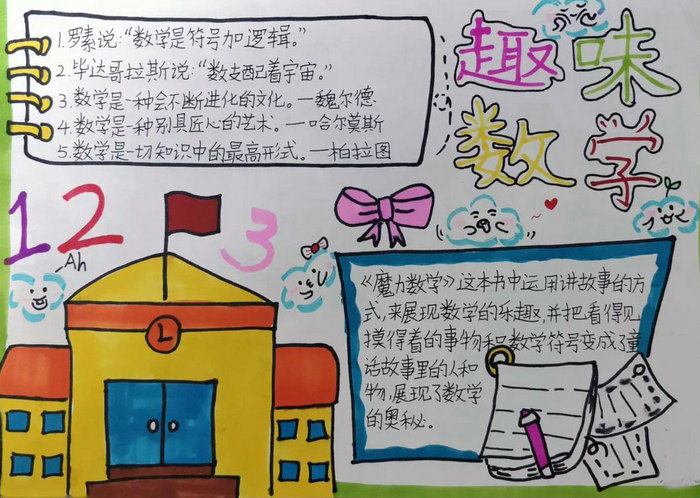 趣味
数学
1.罗素说:“数学是符号加逻辑。”
2.毕达哥拉斯说:“数支配着宇宙。”
3.数学是一种会不断进化的文化。一魏尔德
4.数学是一种别具匠心的艺术。一哈尔莫斯
5.数学是一切知识中的最高形式。一柏拉图
1 2 3
Ah
L
《魔力数学》这本书中运用讲故事的方
式,来展现数学的乐趣,并把看得见
摸得着的事物和数学符号变成了童
话故事里的人和
物,展现了数学
的奥秘。